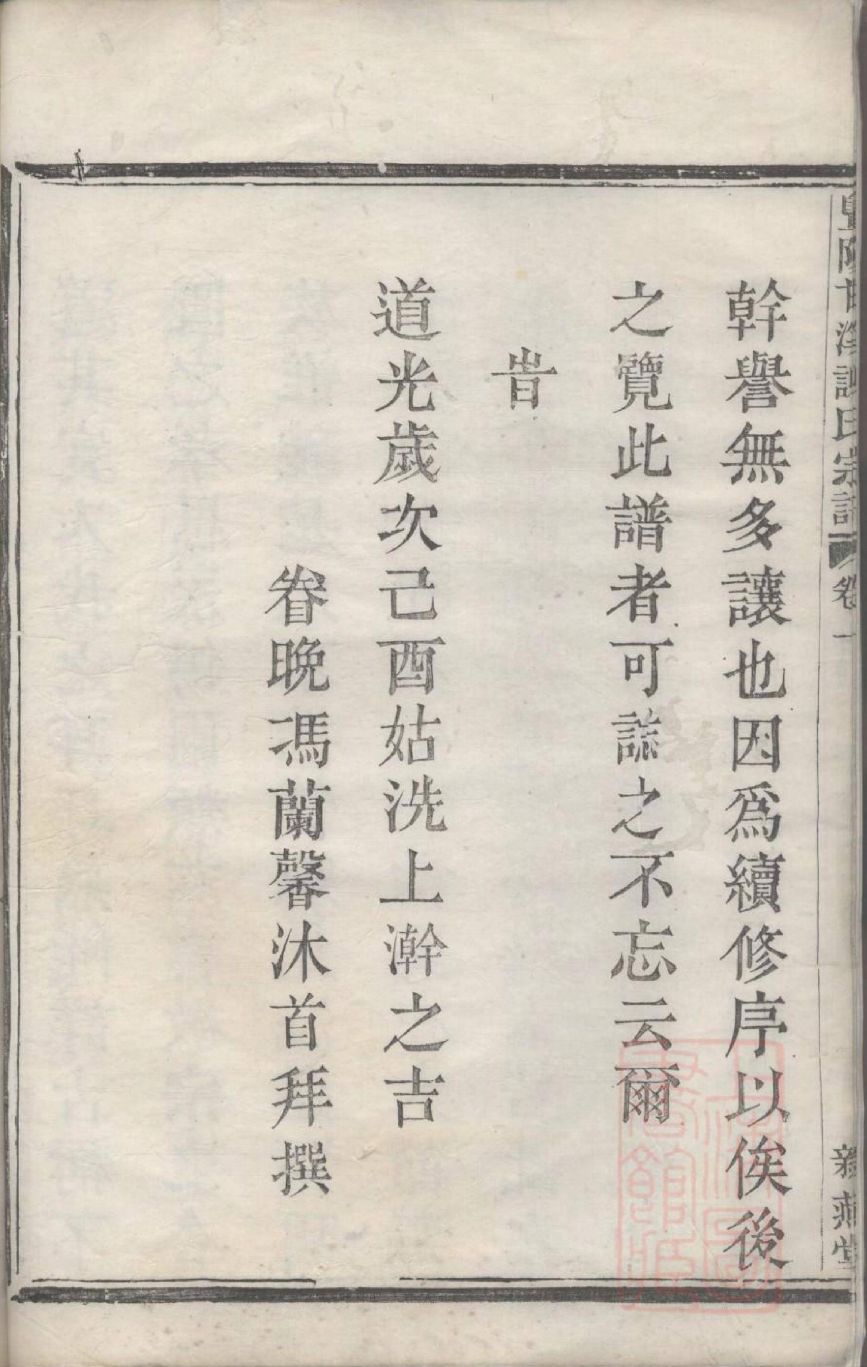 幹譽無多讓也因爲續修序以俟後
之覽此譜者可誌之不忘云爾
旹
道光歲次己酉姑洗上澣之吉
眷晚馮蘭馨沐首拜撰
氏宗譜
卷一